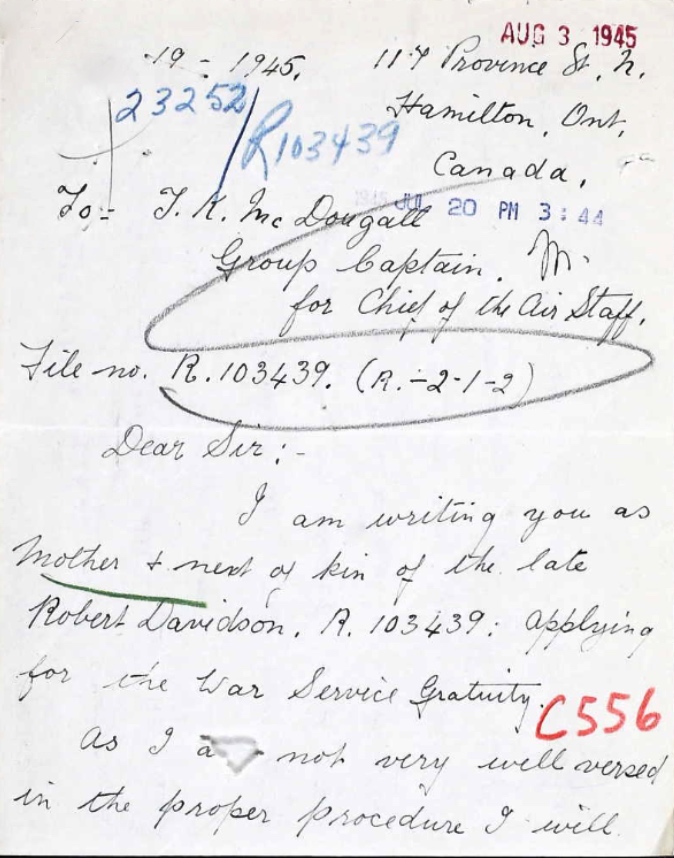 AUG 3 1945
19 - 1945. 117 Province St. N.
Hamilton, Ont,
23252 R103439
Canada,
1945 JUL 20 PM 3:44
To:- T. K. Mc Dougall
Group Captain.
for Chief of the Air Staff.
File no. R. 103439. (R.-2-1-2)
Dear Sir:-
I am writing you as
Mother + next of kin of the late
Robert Davidson. R. 103439: applying
for the War Service Gratuity.
C556
As I not very well versed
in the proper procedure I will